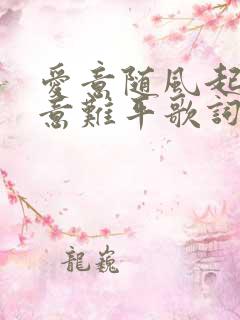 愛意随風起
意難平歌詞
龍巍